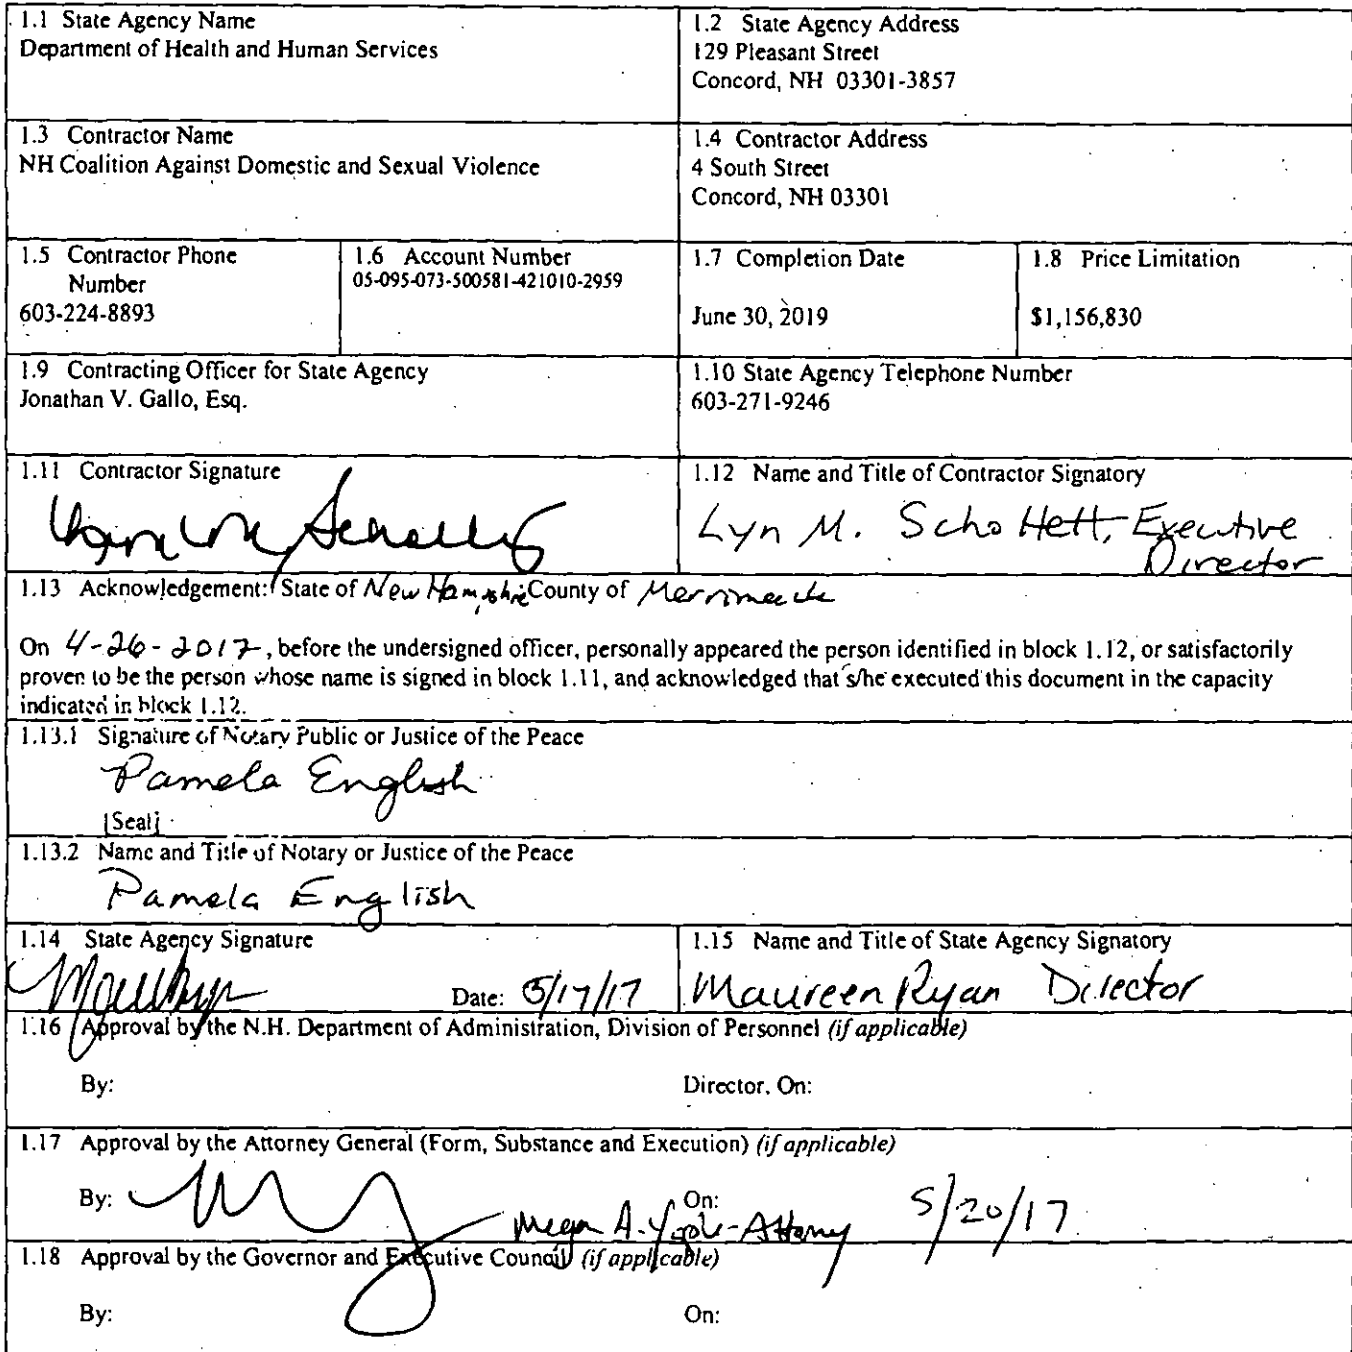 1.1 State Agency Name
Department of Health and Human Services
1.2 State Agency Address
129 Pleasant Street
Concord, NH 03301-3857
1.3 Contractor Name
NH Coalition Against Domestic and Sexual Violence
1.4 Contractor Address
4 South Street
Concord, NH 03301
1.5 Contractor Phone
Number
603-224-8893
1.6 Account Number
05-095-073-500581-421010-2959
1.7 Completion Date
June 30, 2019
1.8 Price Limitation
$1,156,830
1.9 Contracting Officer for State Agency
Jonathan V. Gallo, Esq.
1.10 State Agency Telephone Number
603-271-9246
1.11 Contractor Signature
1.12 Name and Title of Contractor Signatory
Lyn M. Schollett, Executive
Director
1.13 Acknowledgement: State of New Hampshire County of Merrimack
On 4-26-2017, before the undersigned officer, personally appeared the person identified in block 1.12, or satisfactorily
proven to be the person whose name is signed in block 1.11, and acknowledged that s/he executed this document in the capacity
indicated in block 1.12.
1.13.1 Signature of Notary Public or Justice of the Peace
Pamela English
[Seal]
1.13.2 Name and Title of Notary or Justice of the Peace
Pamela English
1.14 State Agency Signature
Date: 5/17/17
1.15 Name and Title of State Agency Signatory
Maureen Ryan Director
1.16 Approval by the N.H. Department of Administration, Division of Personnel (if applicable)
By: Director, On:
1.17 Approval by the Attorney General (Form, Substance and Execution) (if applicable)
By: On:
Megan A. - Attorney 5/20/17
1.18 Approval by the Governor and Executive Council (if applicable)
By: On: